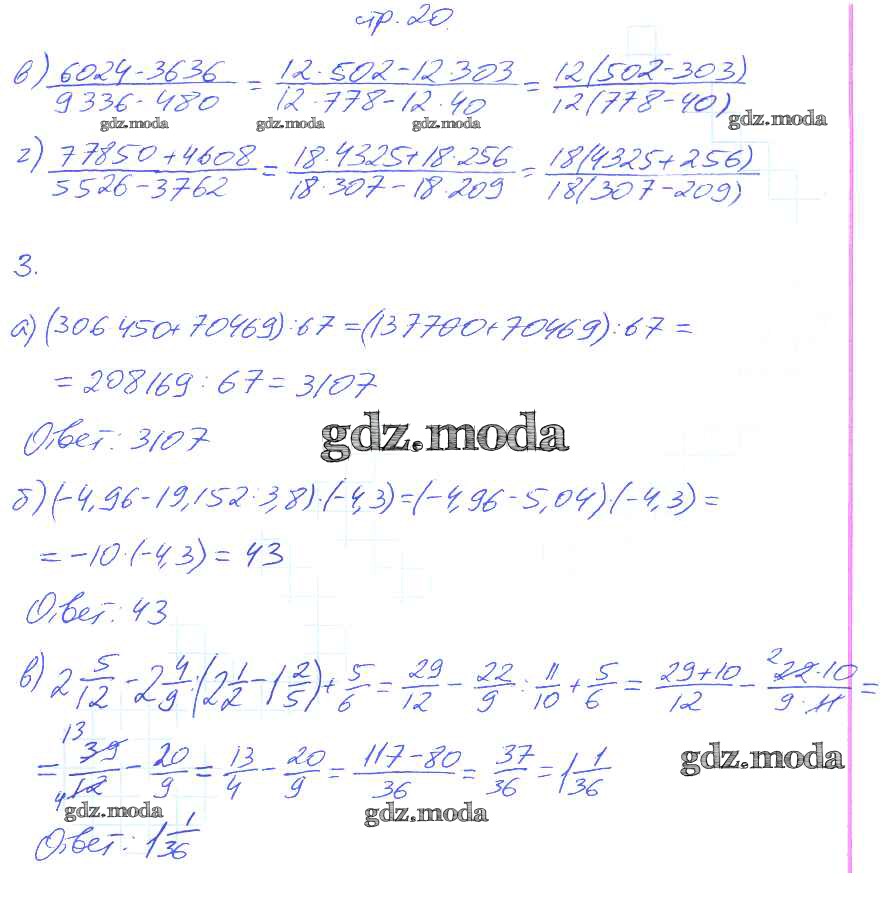 стр. 20.
в) (6024-3636)/(9336-480) = (12·502-12·303)/(12·778-12·40) = (12(502-303))/(12(778-40))
gdz.moda gdz.moda gdz.moda gdz.moda
г) (77850+4608)/(5526-3762) = (18·4325+18·256)/(18·307-18·209) = (18(4325+256))/(18(307-209))
3.
а) (306 450+70469):67=(137700+70469):67=
= 208169 : 67 = 3107
Ответ: 3107
gdz.moda
б) (-4,96-19,152:3,8)·(-4,3)=(-4,96-5,04)·(-4,3)=
= -10·(-4,3) = 43
Ответ: 43
в) 2 5/12 - 2 4/9 : (2 1/2 - 1 2/5) + 5/6 = 29/12 - 22/9 : 11/10 + 5/6 = (29+10)/12 - (22·10)/(9·11) =
= 39/12 - 20/9 = 13/4 - 20/9 = (117-80)/36 = 37/36 = 1 1/36
gdz.moda
gdz.moda gdz.moda
Ответ: 1 1/36